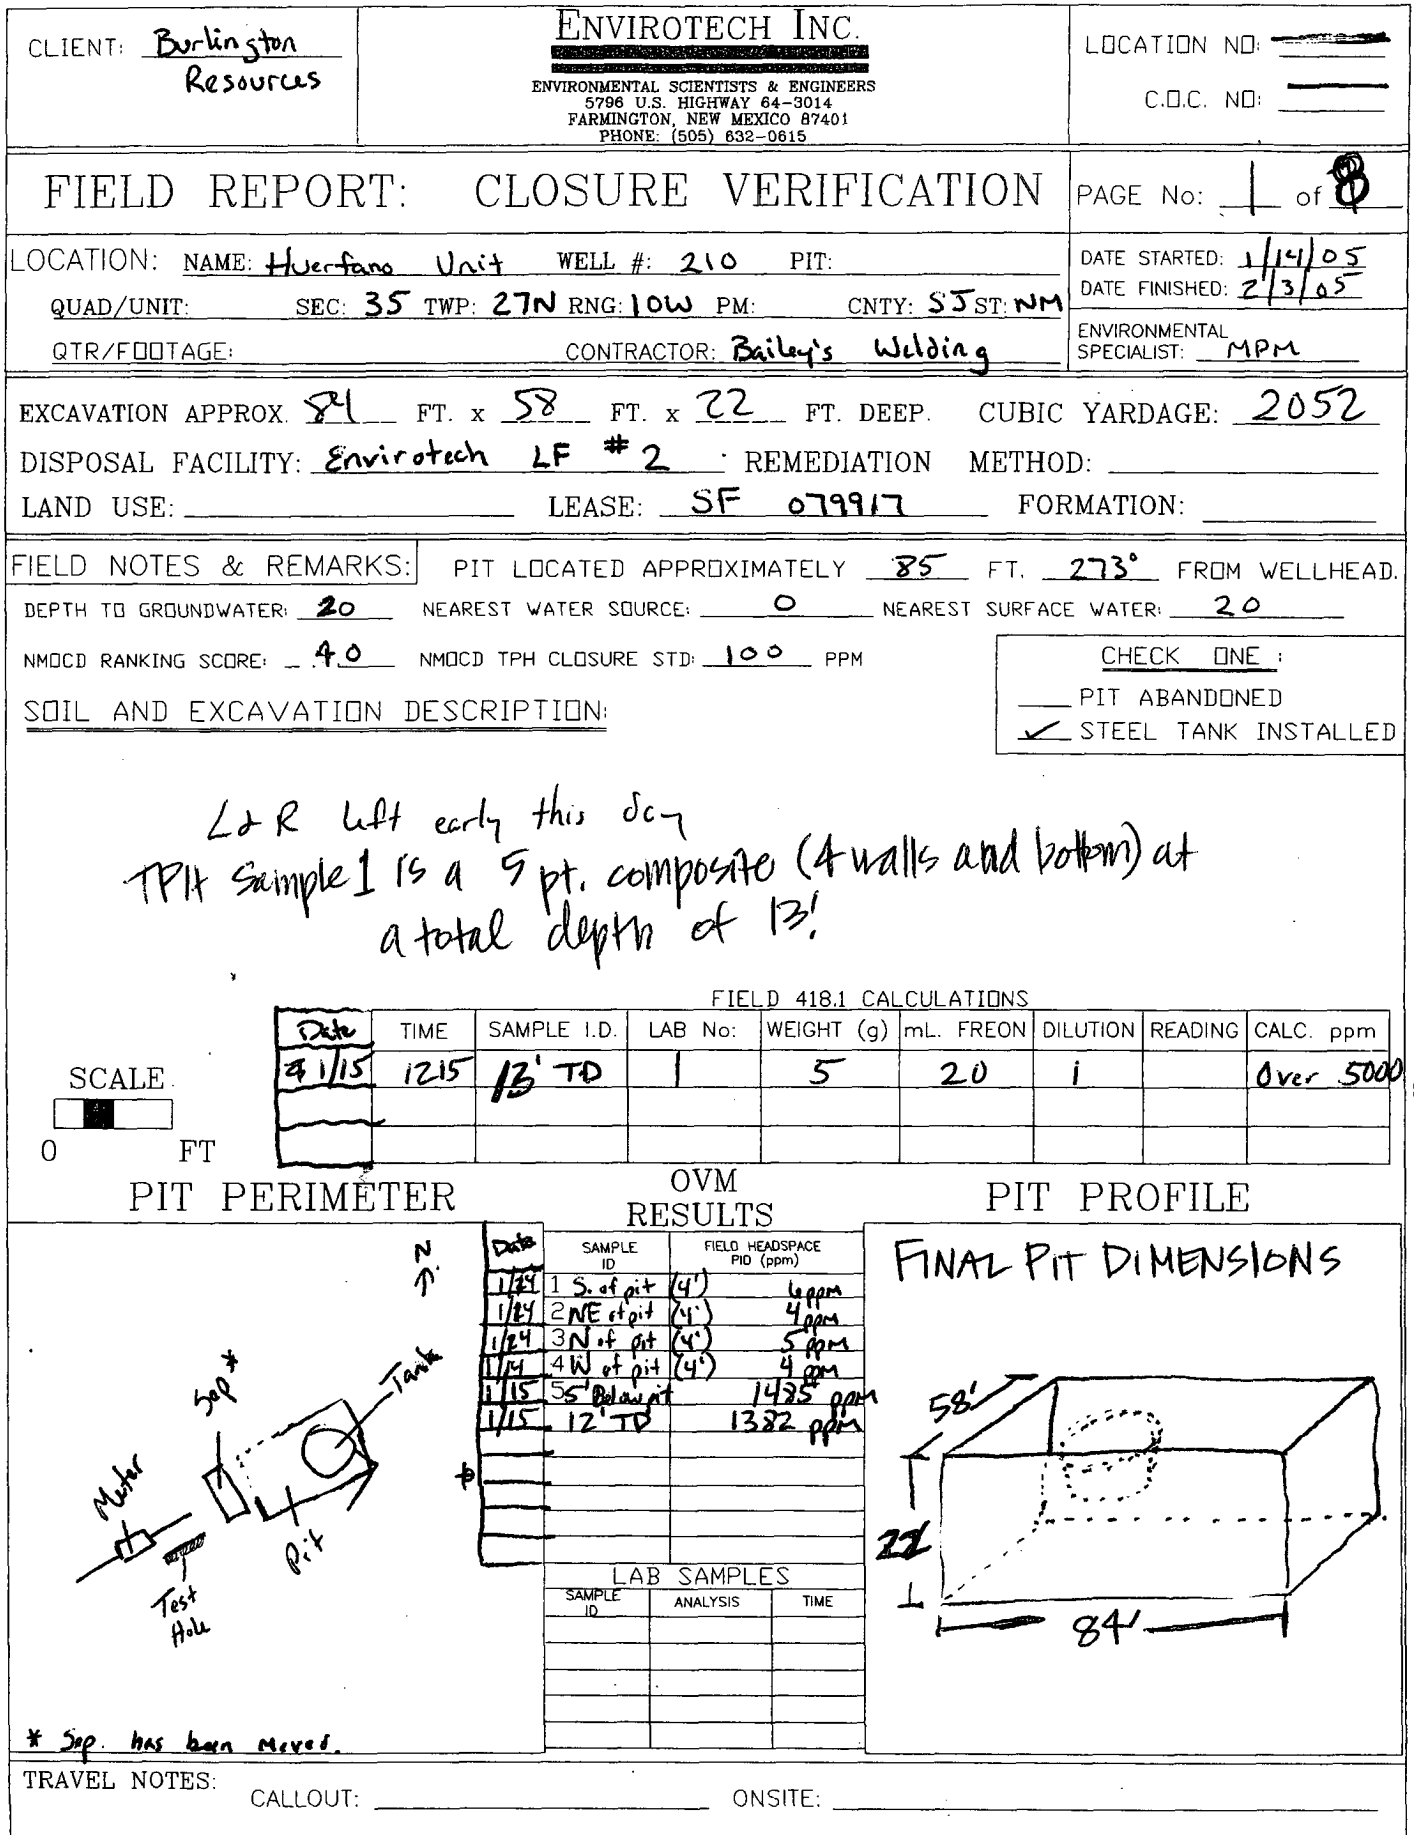 CLIENT: Burlington Resources
ENVIROTECH INC.
ENVIRONMENTAL SCIENTISTS & ENGINEERS
5796 U.S. HIGHWAY 64-3014
FARMINGTON, NEW MEXICO 87401
PHONE: (505) 632-0615
LOCATION NO:
C.O.C. NO:
FIELD REPORT: CLOSURE VERIFICATION
PAGE No: 1 of 8
LOCATION: NAME: Huerfano Unit WELL #: 210 PIT:
QUAD/UNIT: SEC: 35 TWP: 27N RNG: 10W PM: CNTY: SJ ST: NM
QTR/FOOTAGE: CONTRACTOR: Bailey's Welding
DATE STARTED: 1/14/05
DATE FINISHED: 2/3/05
ENVIRONMENTAL
SPECIALIST: MPM
EXCAVATION APPROX. 84 FT. x 58 FT. x 22 FT. DEEP. CUBIC YARDAGE: 2052
DISPOSAL FACILITY: Envirotech LF #2 REMEDIATION METHOD:
LAND USE: LEASE: SF 079917 FORMATION:
FIELD NOTES & REMARKS: PIT LOCATED APPROXIMATELY 85 FT. 273° FROM WELLHEAD.
DEPTH TO GROUNDWATER: 20 NEAREST WATER SOURCE: 0 NEAREST SURFACE WATER: 20
NMOCD RANKING SCORE: 40 NMOCD TPH CLOSURE STD: 100 PPM
CHECK ONE :
PIT ABANDONED
✓ STEEL TANK INSTALLED
SOIL AND EXCAVATION DESCRIPTION:
L&R left early this day
TPH Sample 1 is a 5 pt. composite (4 walls and bottom) at
a total depth of 13'.
FIELD 418.1 CALCULATIONS
Date TIME SAMPLE I.D. LAB No: WEIGHT (g) mL. FREON DILUTION READING CALC. ppm
1/15 1215 13' TD 1 5 20 1 Over 5000
SCALE
0 FT
PIT PERIMETER
N
Sep*
Tank
Meter
Pit
Test
Hole
* Sep. has been moved.
OVM
RESULTS
Date SAMPLE ID FIELD HEADSPACE PID (ppm)
1/14 1 S. of pit (4') 6 ppm
1/14 2 NE of pit (4') 4 ppm
1/14 3 N of pit (4') 5 ppm
1/14 4 W of pit (4') 4 ppm
1/15 5 5' Below pit 1485 ppm
1/15 12' TD 1382 ppm
LAB SAMPLES
SAMPLE ID ANALYSIS TIME
PIT PROFILE
FINAL PIT DIMENSIONS
58'
22'
84'
TRAVEL NOTES: CALLOUT: ONSITE: